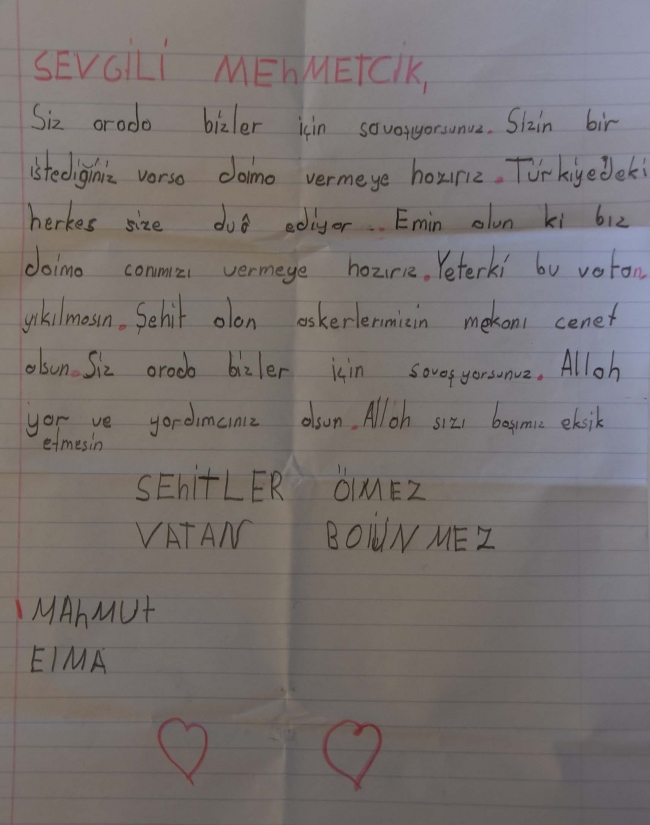 SEVGİLİ MEhMETCİK,
Siz orada bizler için savaşıyorsunuz. Sizin bir
istediğiniz varsa daima vermeye hazırız. Türkiyedeki
herkes size duâ ediyor.. Emin olun ki biz
daima canımızı vermeye hazırız. Yeterki bu vatan
yıkılmasın. Şehit olan askerlerimizin mekanı cenet
olsun. Siz orada bizler için savaş yorsunuz. Allah
yar ve yardımcınız olsun. Allah sızı başımız eksik
etmesin
SEhİTLER ÖlMEZ
VATAN BOlÜNMEZ
MAhMUt
ElMA